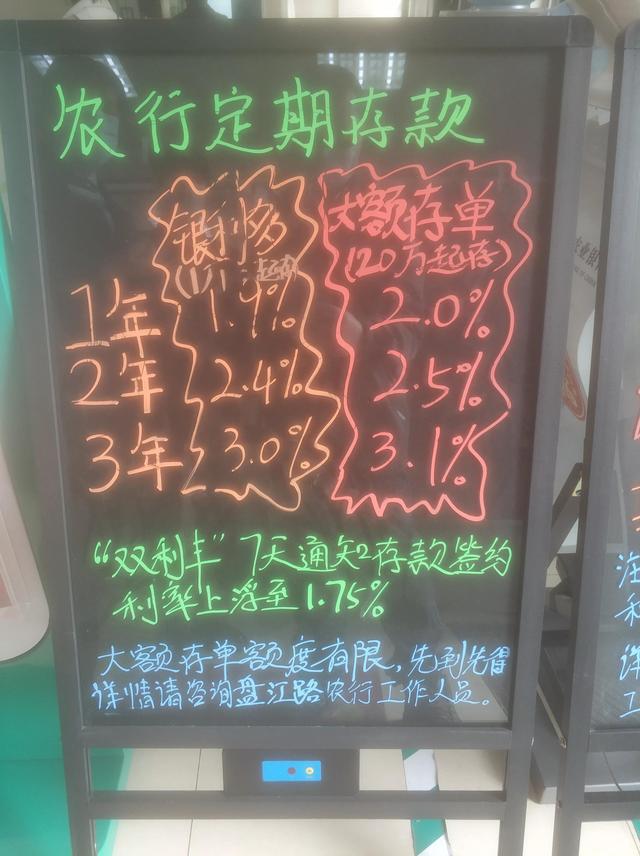 农行定期存款
银利多 大额存单
(1万起存) (20万起存)
1年 1.9% 2.0%
2年 2.4% 2.5%
3年 3.0% 3.1%
“双利丰”7天通知存款签约
利率上浮至1.75%
大额存单额度有限,先到先得
详情请咨询盘江路农行工作人员。